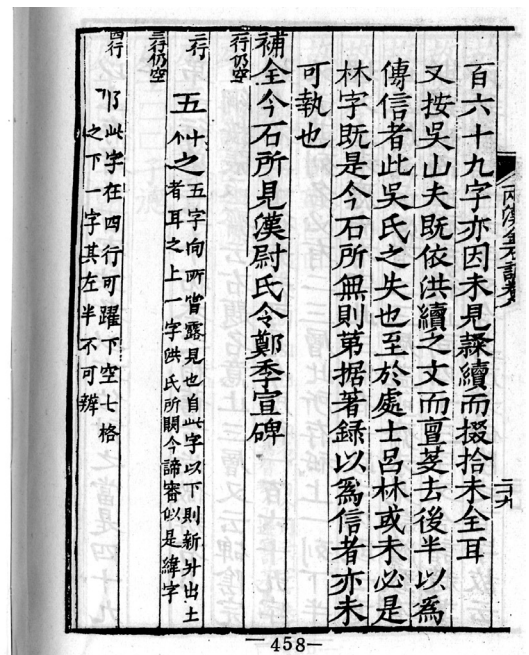 百六十九字亦因未見隸續而掇拾未全耳
又按吳山夫既依洪續之文而亶芟去後半以為
傳信者此吳氏之失也至於處士呂林或未必是
林字既是今石所無則第据著録以爲信者亦未
可執也
補全今石所見漢尉氏令鄭季宣碑
一行仍空
二行
五
之
五字向所嘗露見也自此字以下則新升出土
者耳之上一字洪氏所闕今諦審似是緯字
三行仍空
四行
此字在四行可躍下空七格
之下一字其左半不可辨
兩漢金石記卷
二九
—458—